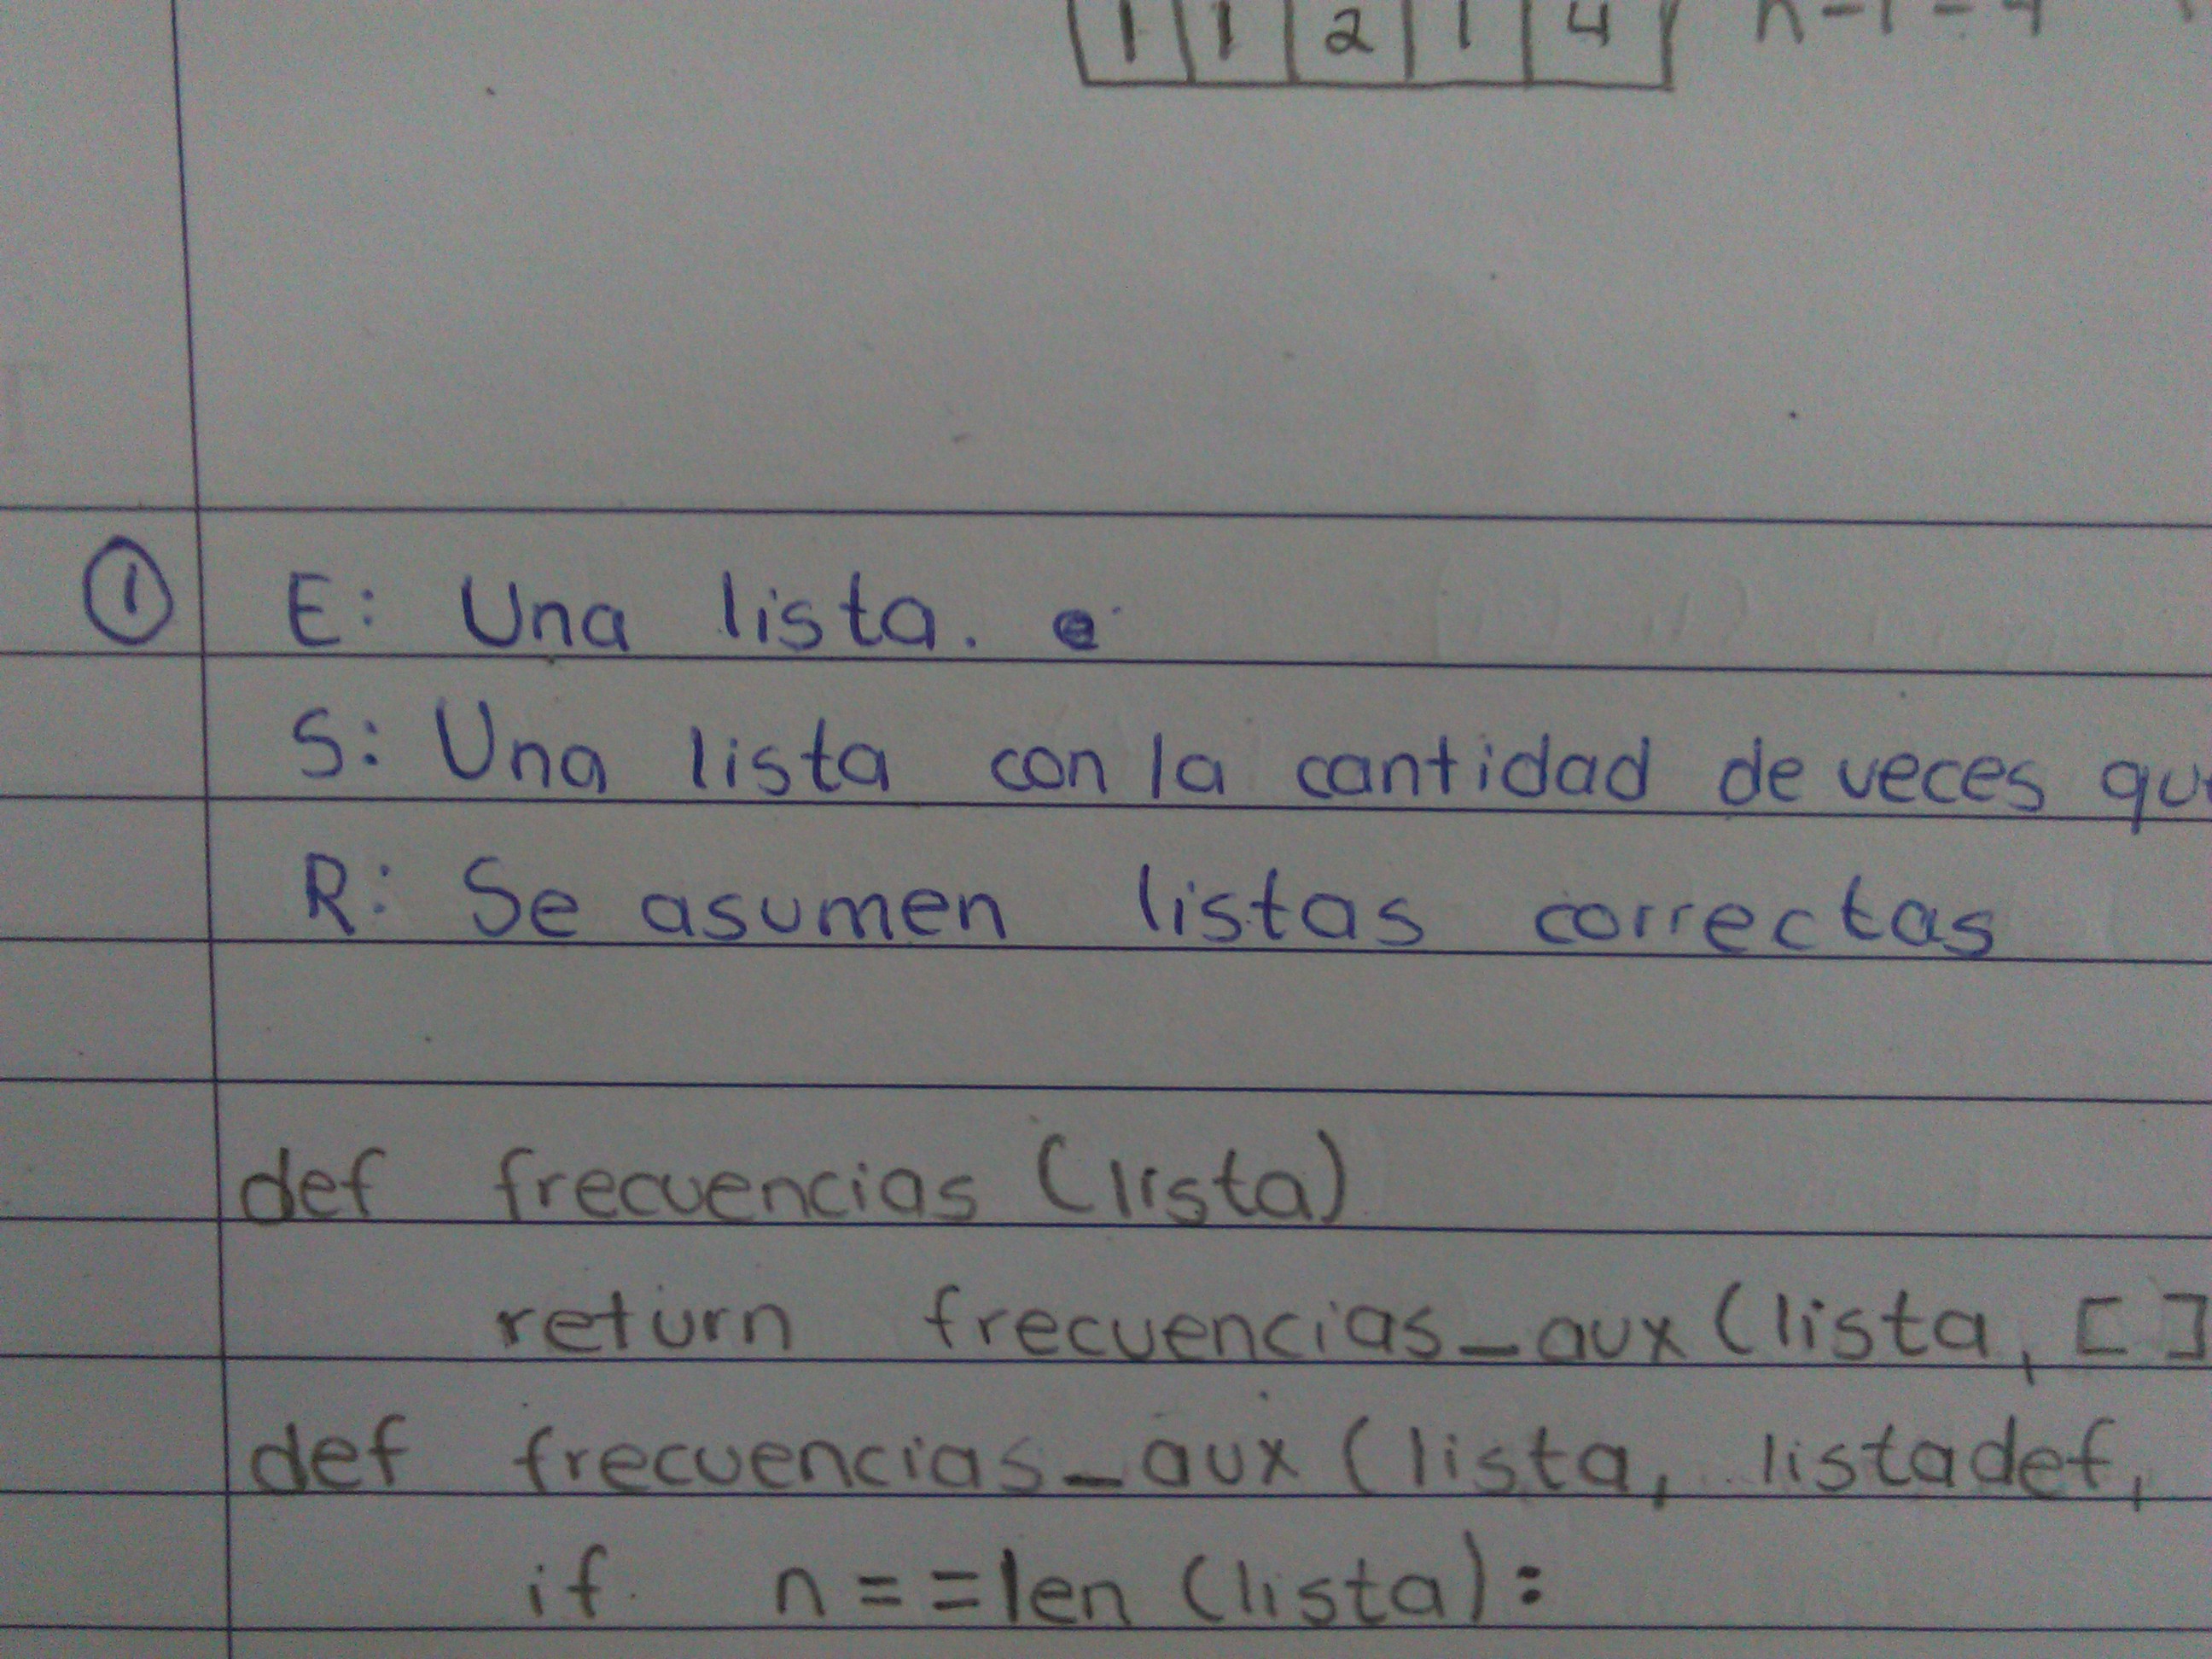 1 1 2 1 4 n-1=4
① E: Una lista.
S: Una lista con la cantidad de veces que
R: Se asumen listas correctas
def frecuencias (lista)
return frecuencias_aux (lista, []
def frecuencias_aux (lista, listadef,
if n==len (lista):